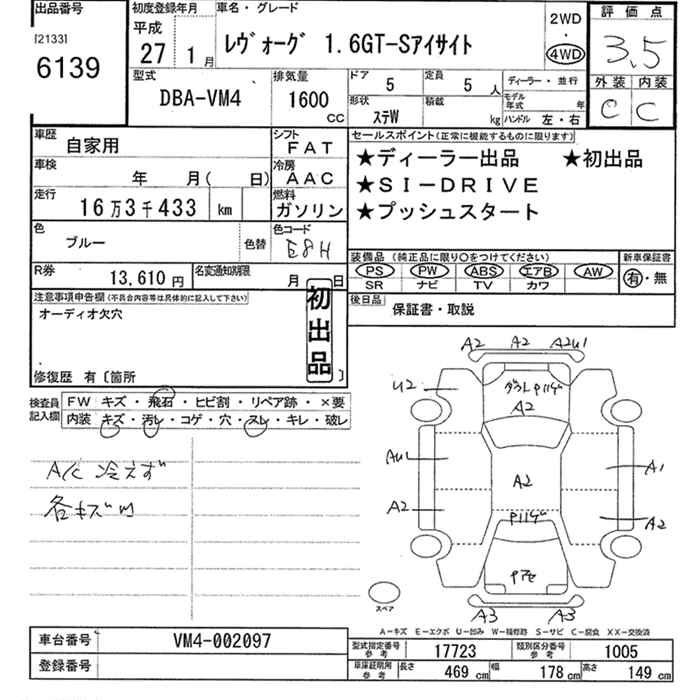 出品番号
[2133]
6139
初度登録年月
平成
27 1月
車名・グレード
レヴォーグ 1.6GT-Sアイサイト
2WD
・
4WD
評価点
3.5
外装 内装
C C
型式
DBA-VM4
排気量
1600
CC
ドア
5
定員
5 人
形状
ステW
積載
kg
ディーラー・並行
モデル年式
年
ハンドル 左・右
車歴
自家用
シフト
FAT
車検
年 月( 日)
冷房
AAC
走行
16万3千433 km
燃料
ガソリン
色
ブルー
色替
色コード
E8H
R券
13,610円
名変通知期限
月 日
セールスポイント(正常に機能するものに限ります)
★ディーラー出品 ★初出品
★SI-DRIVE
★プッシュスタート
装備品 (純正品に限り○をつけてください)
PS PW ABS エアB AW
SR ナビ TV カワ
新車保証書
有・無
後日品
保証書・取説
注意事項申告欄(不具合内容等は具体的に記入して下さい)
オーディオ欠穴
修復歴 有〔箇所 〕
初出品
検査員
記入欄
FW キズ・飛石・ヒビ割・リペア跡・×要
内装・キズ・汚レ・コゲ・穴・スレ・キレ・破レ
A/C 冷えず
各キズ凹
A2 A2 A2U1
U2
A2
AU1
A2
A2
A1
A2
A3 A3
スペア
A-キズ E-エクボ U-凹み W-補修跡 S-サビ C-腐食 XX-交換済
車台番号
VM4-002097
登録番号
型式指定番号
参考
17723
類別区分番号
参考
1005
車庫証明用
参考
長さ
469 cm
幅
178 cm
高さ
149 cm